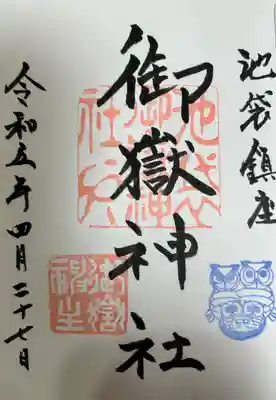 池袋鎮座
御嶽神社
令和五年四月二十七日
池袋御嶽神社